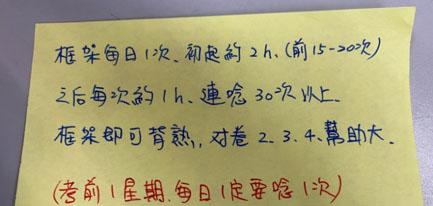 框架每日1次、初起約2h.(前15-20次)
之后每次約1h.連唸30次以上.
框架即可背熟,,对卷2.3.4.幫助大.
(考前1星期.每日1定要唸1次)